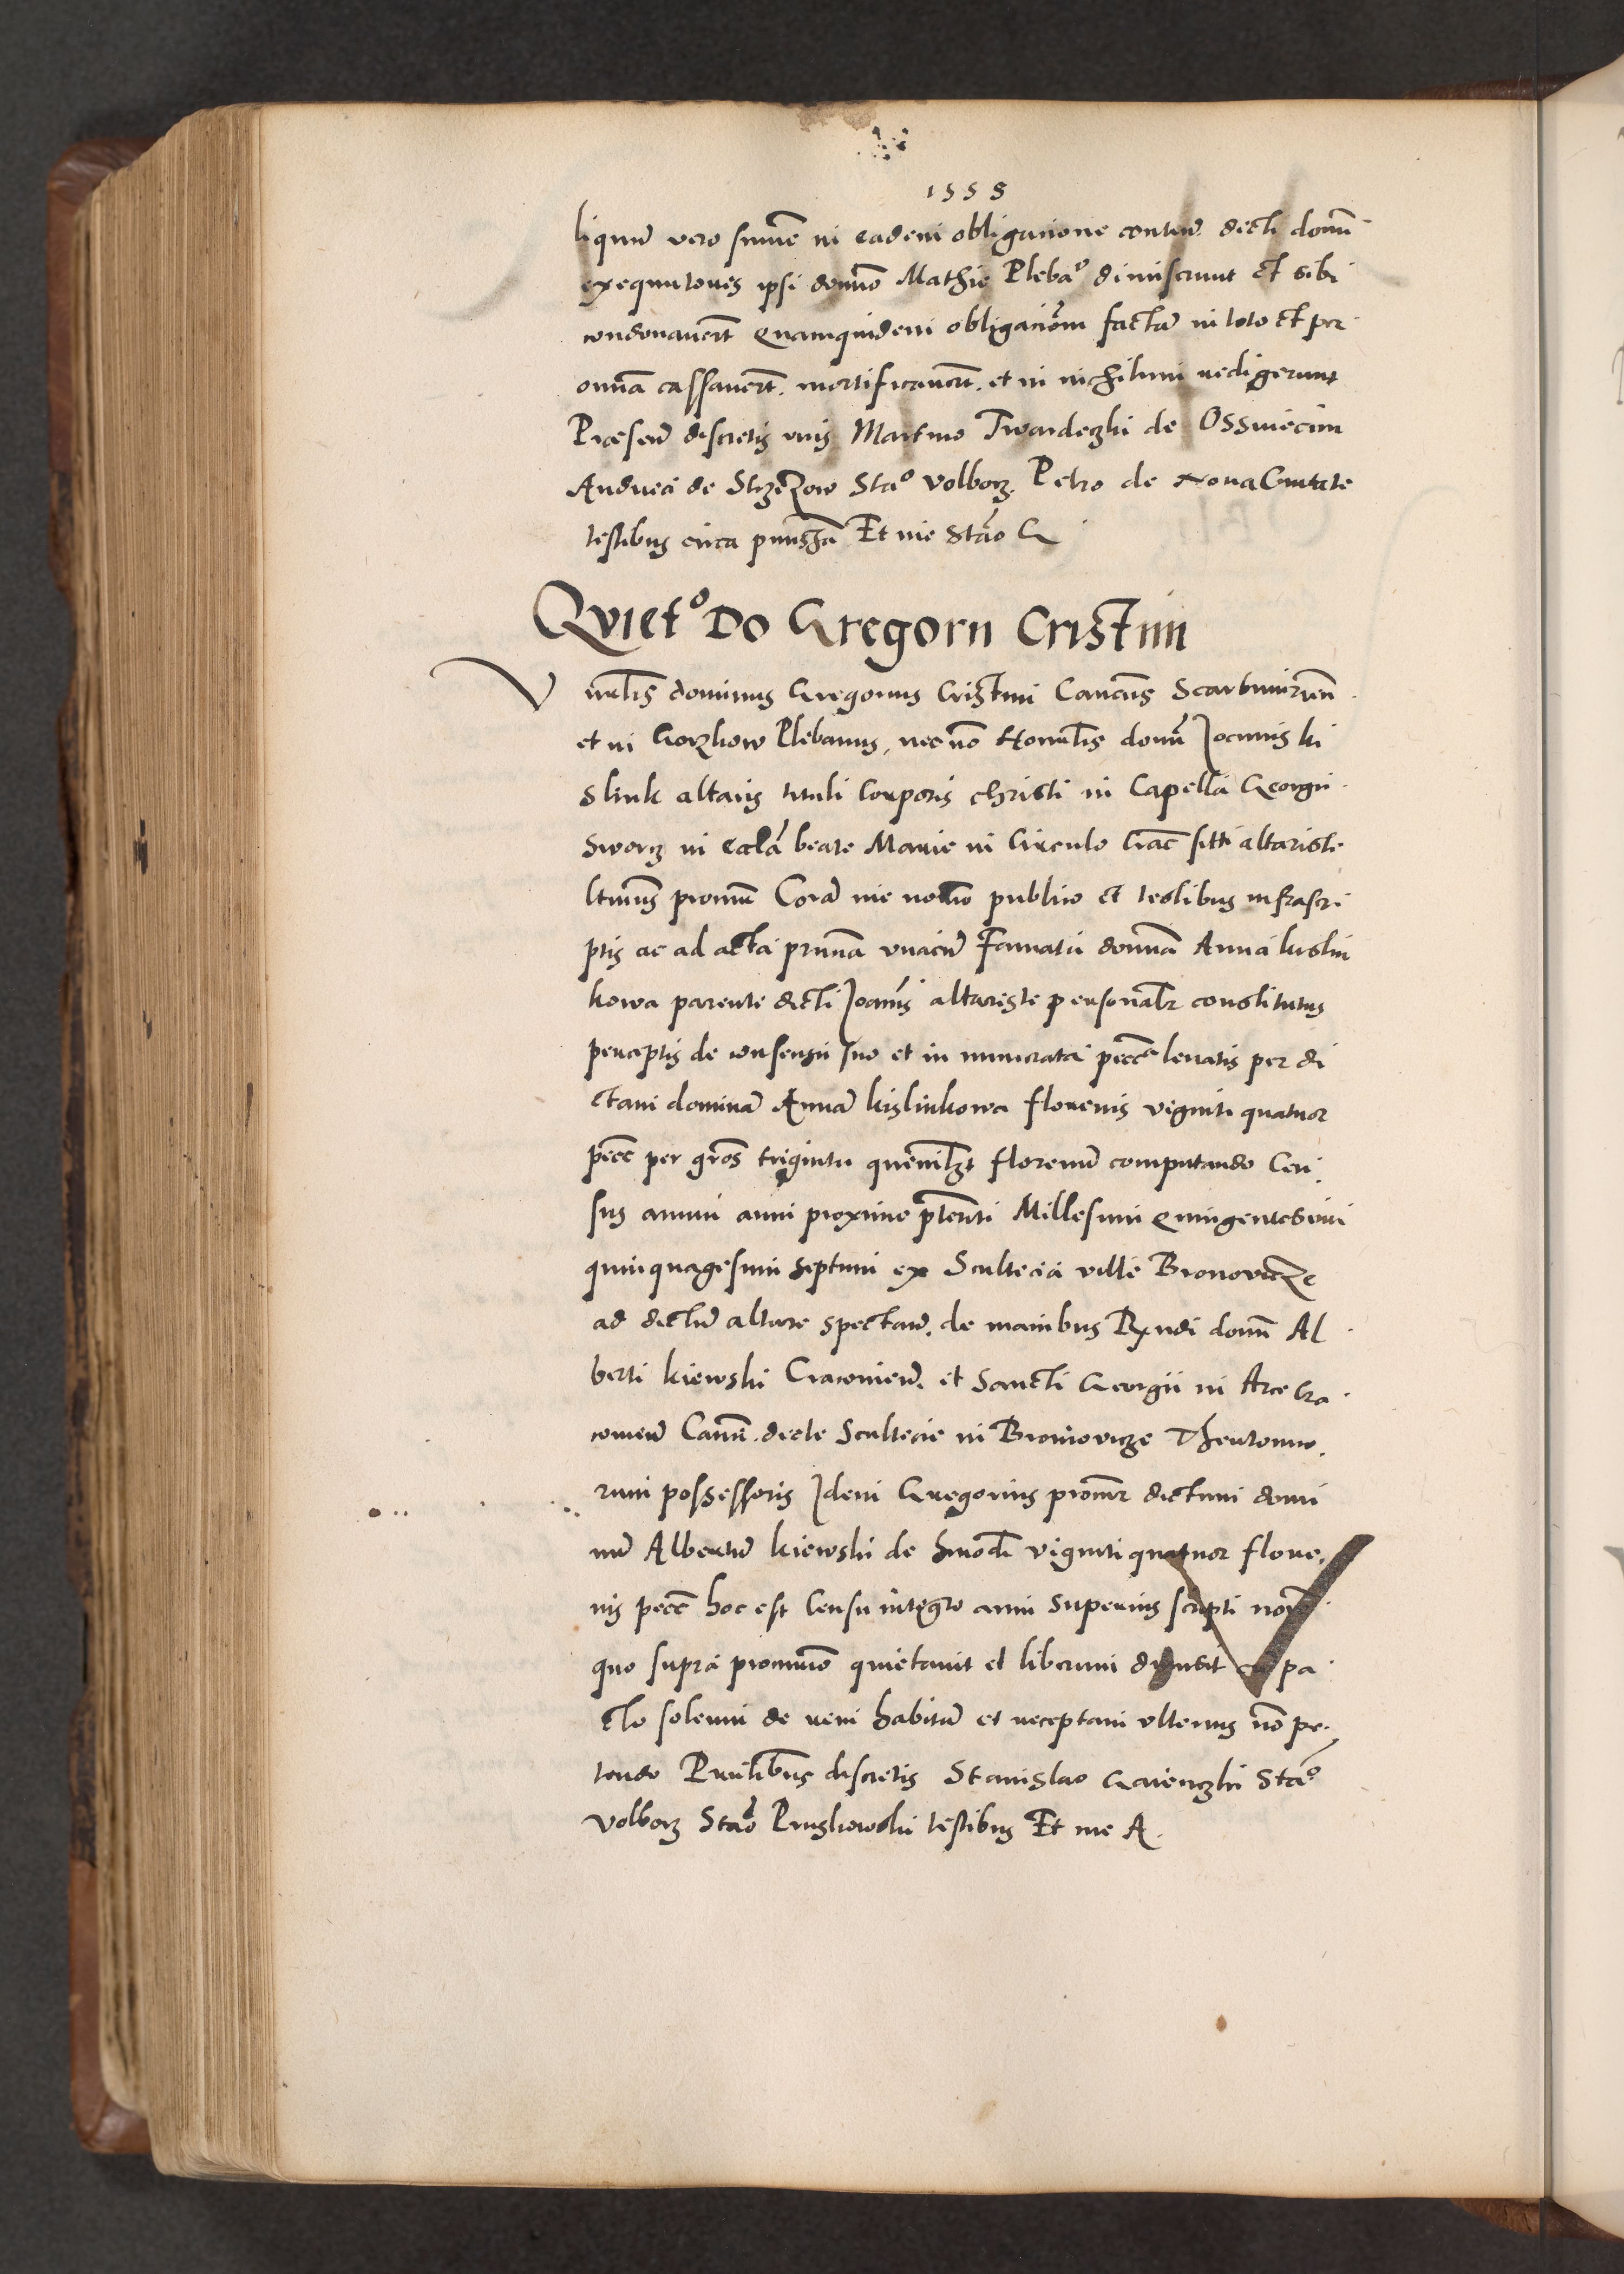 1558
liquam vero summe in eadem obligacione conten dicti domi
exequutores ipsi domino Mathie Plebano dimiserunt et sibi
condonaverunt Quamquidem obligacionem factam in toto et per
omnia cassaverunt. mortificaverunt. et in nichilum redigerunt
Presen discretis viris Martino Twardeczki de Osswiecim
Andrea de Strzezow Stao Volborz. Petro de Nova Civitate
testibus circa premissa Et me Stao G
Quieto Do Gregorii Cristini
Venerabilis dominus Gregorius Cristini Canonicus Scarbimirien
et in Gorzkow Plebanus, nec non Honorabilis domini Joannis ki
slink altaris tituli Corporis christi in Capella Georgii
Sworcz in Eccla beate Marie in Circulo Crac sitti altariste
ltimus procur Coram me notario publico et testibus infrascri
ptis ac ad acta prima unacum Famata domina Anna kislin
kowa parente dicti Joannis altariste personaliter constitutus
perceptis de consensu suo et in numerata pecc levatis per di
ctam dominam Annam kislinkowa florenis viginti quatuor
pecc per gros triginta quemlibet florenum computando Cen
sus annui anni proxime preteriti Millesimi Quingentesimi
quinquagesimi septimi ex Scultecia ville Bronovicze
ad dictum altare spectan. de manibus Rndi domi Al
berti kiewski Cracovien. et Sancti Georgii in Arce Cra
covien Canon. dicte Scultecie in Bronovicze Theutonico
rum possessoris Idem Gregorius procur dictum domi
num Albertum kiewski de hmodi viginti quatuor flore,
nis pecc hoc est Censu integro anni superius scripti noie
quo supra procurio quietavit et liberum dimisit cum pa
cto solenni de rem habitam et receptam ulterius non pe
tendo Presentibus discretis Stanislao Gaienczki Stao
Volborz Stao Pruskowski testibus Et me A.